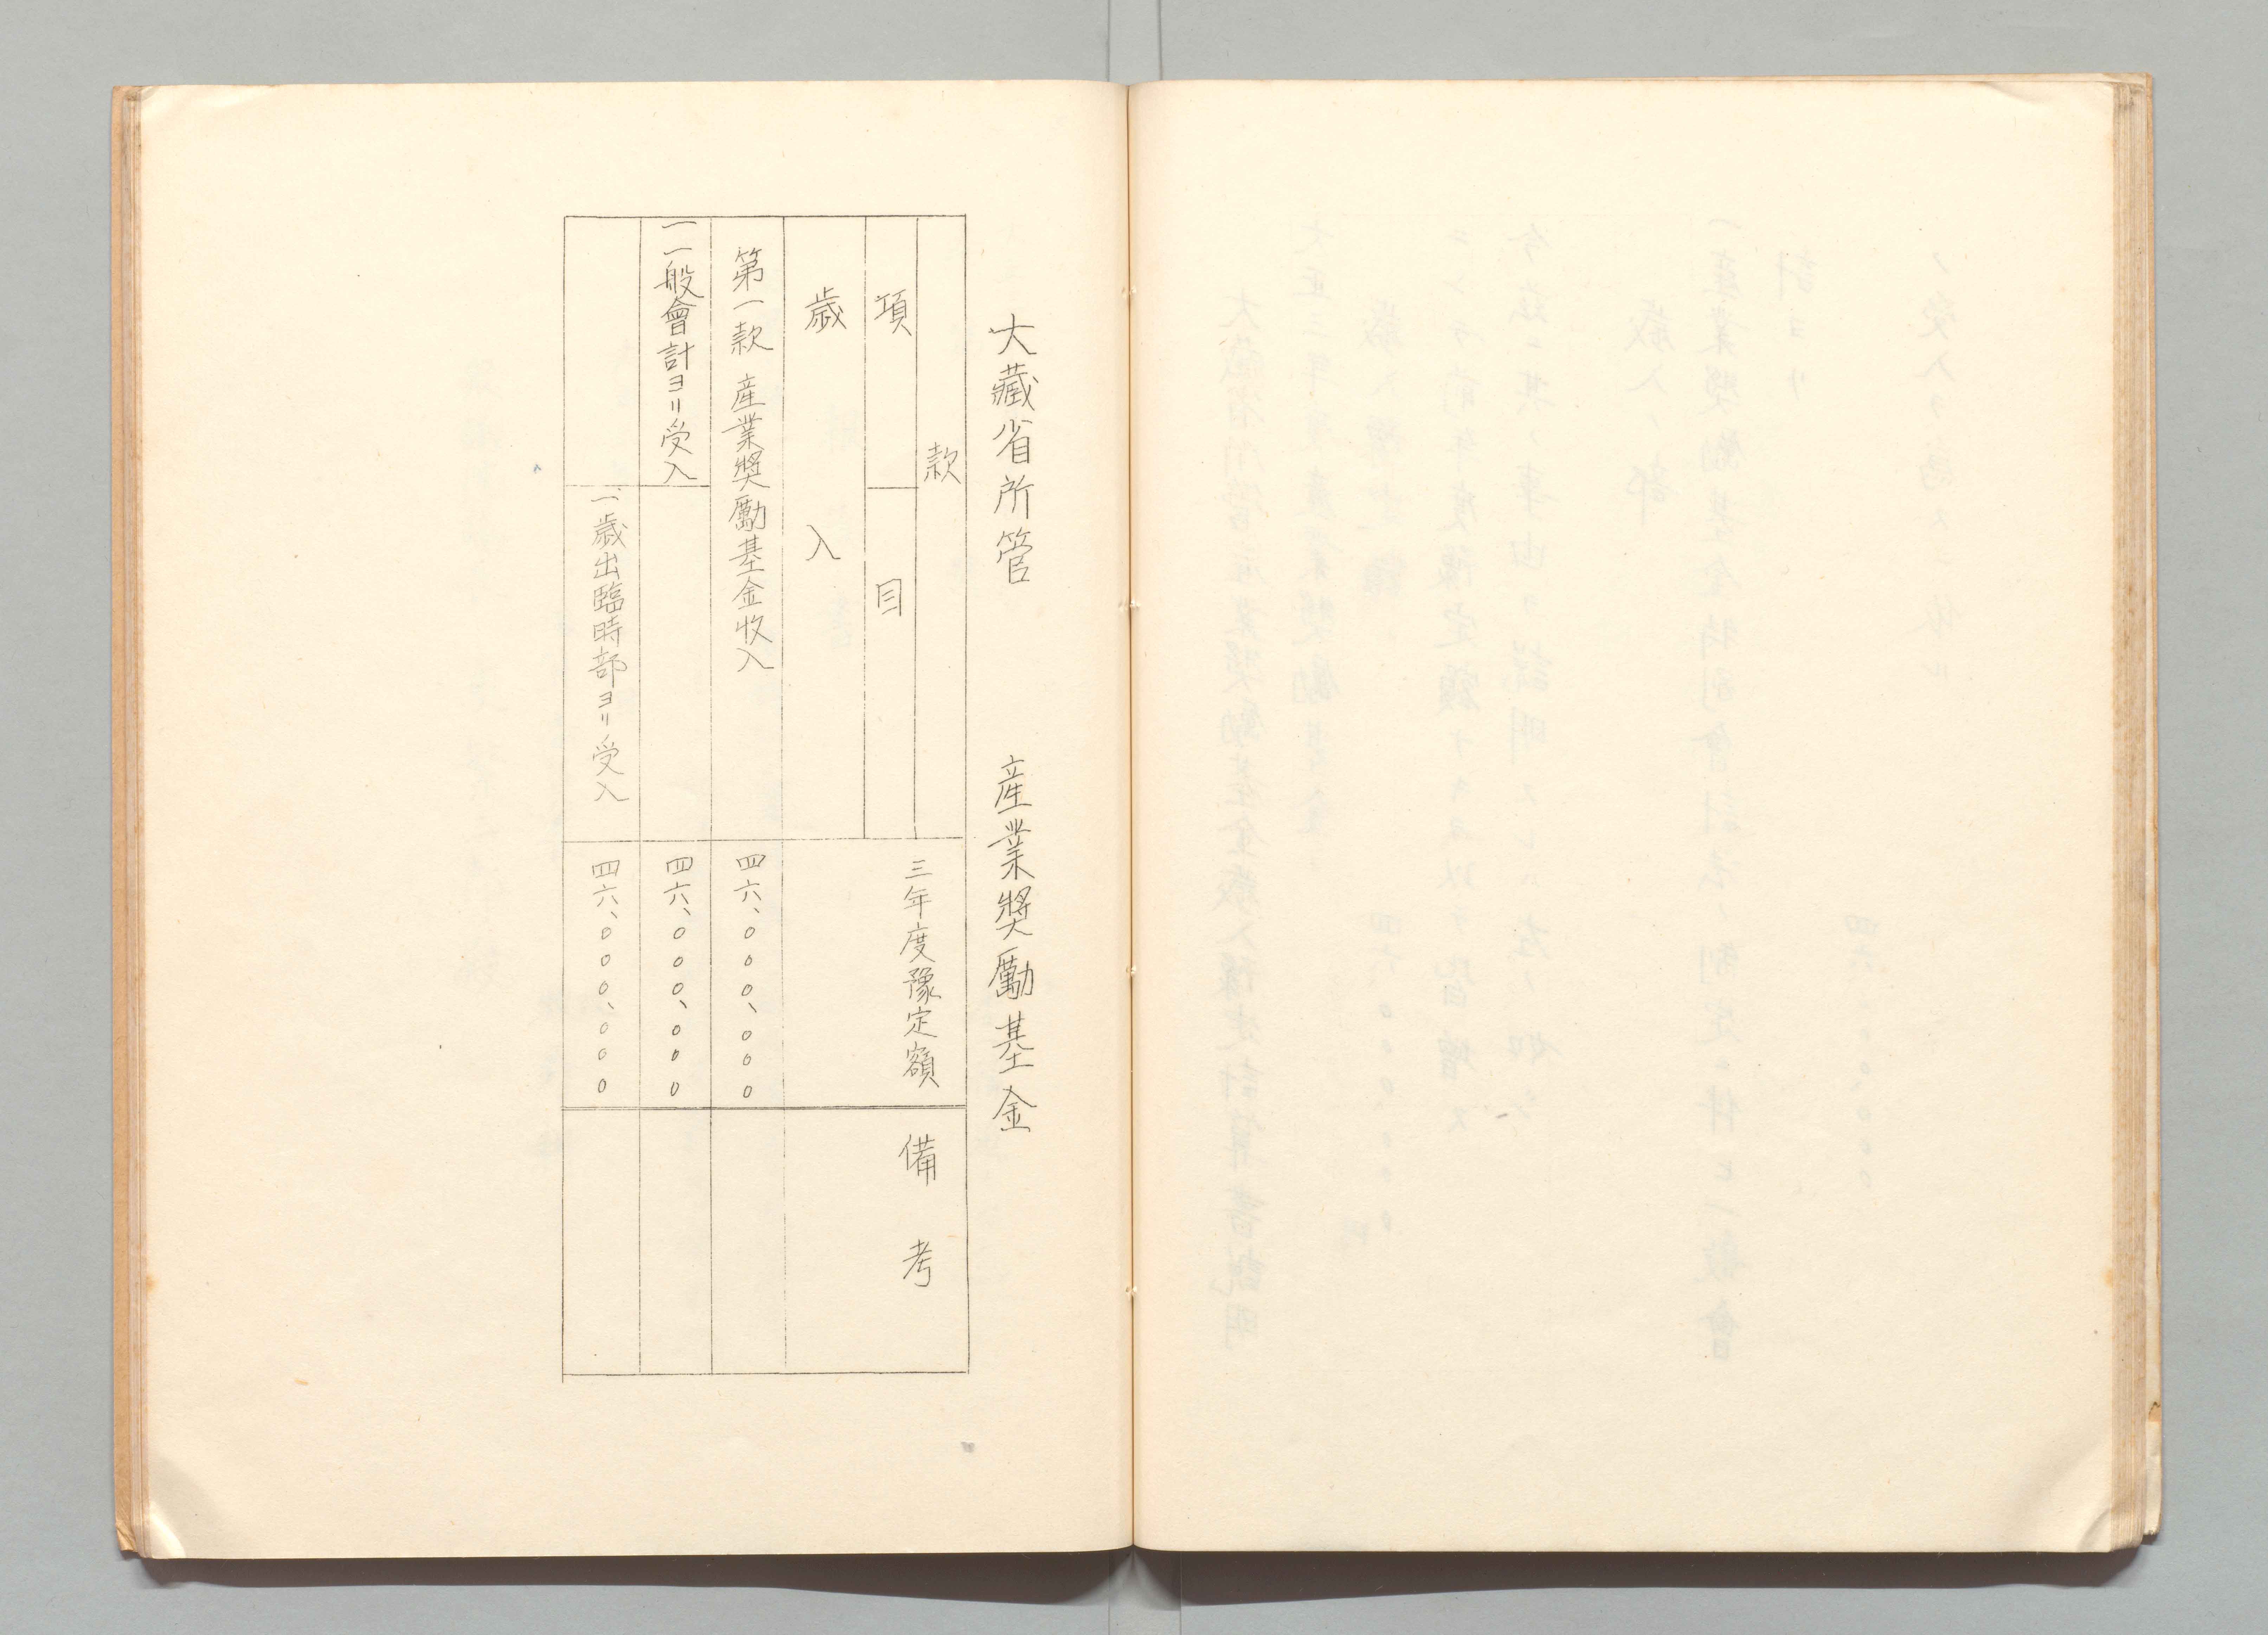 大藏省所管　産業奬勵基金
款
項　目
三年度豫定額
備考
歳入
第一款　産業奬勵基金收入　四六、〇〇〇、〇〇〇
一一般會計ヨリ受入　四六、〇〇〇、〇〇〇
一歳出臨時部ヨリ受入　四六、〇〇〇、〇〇〇